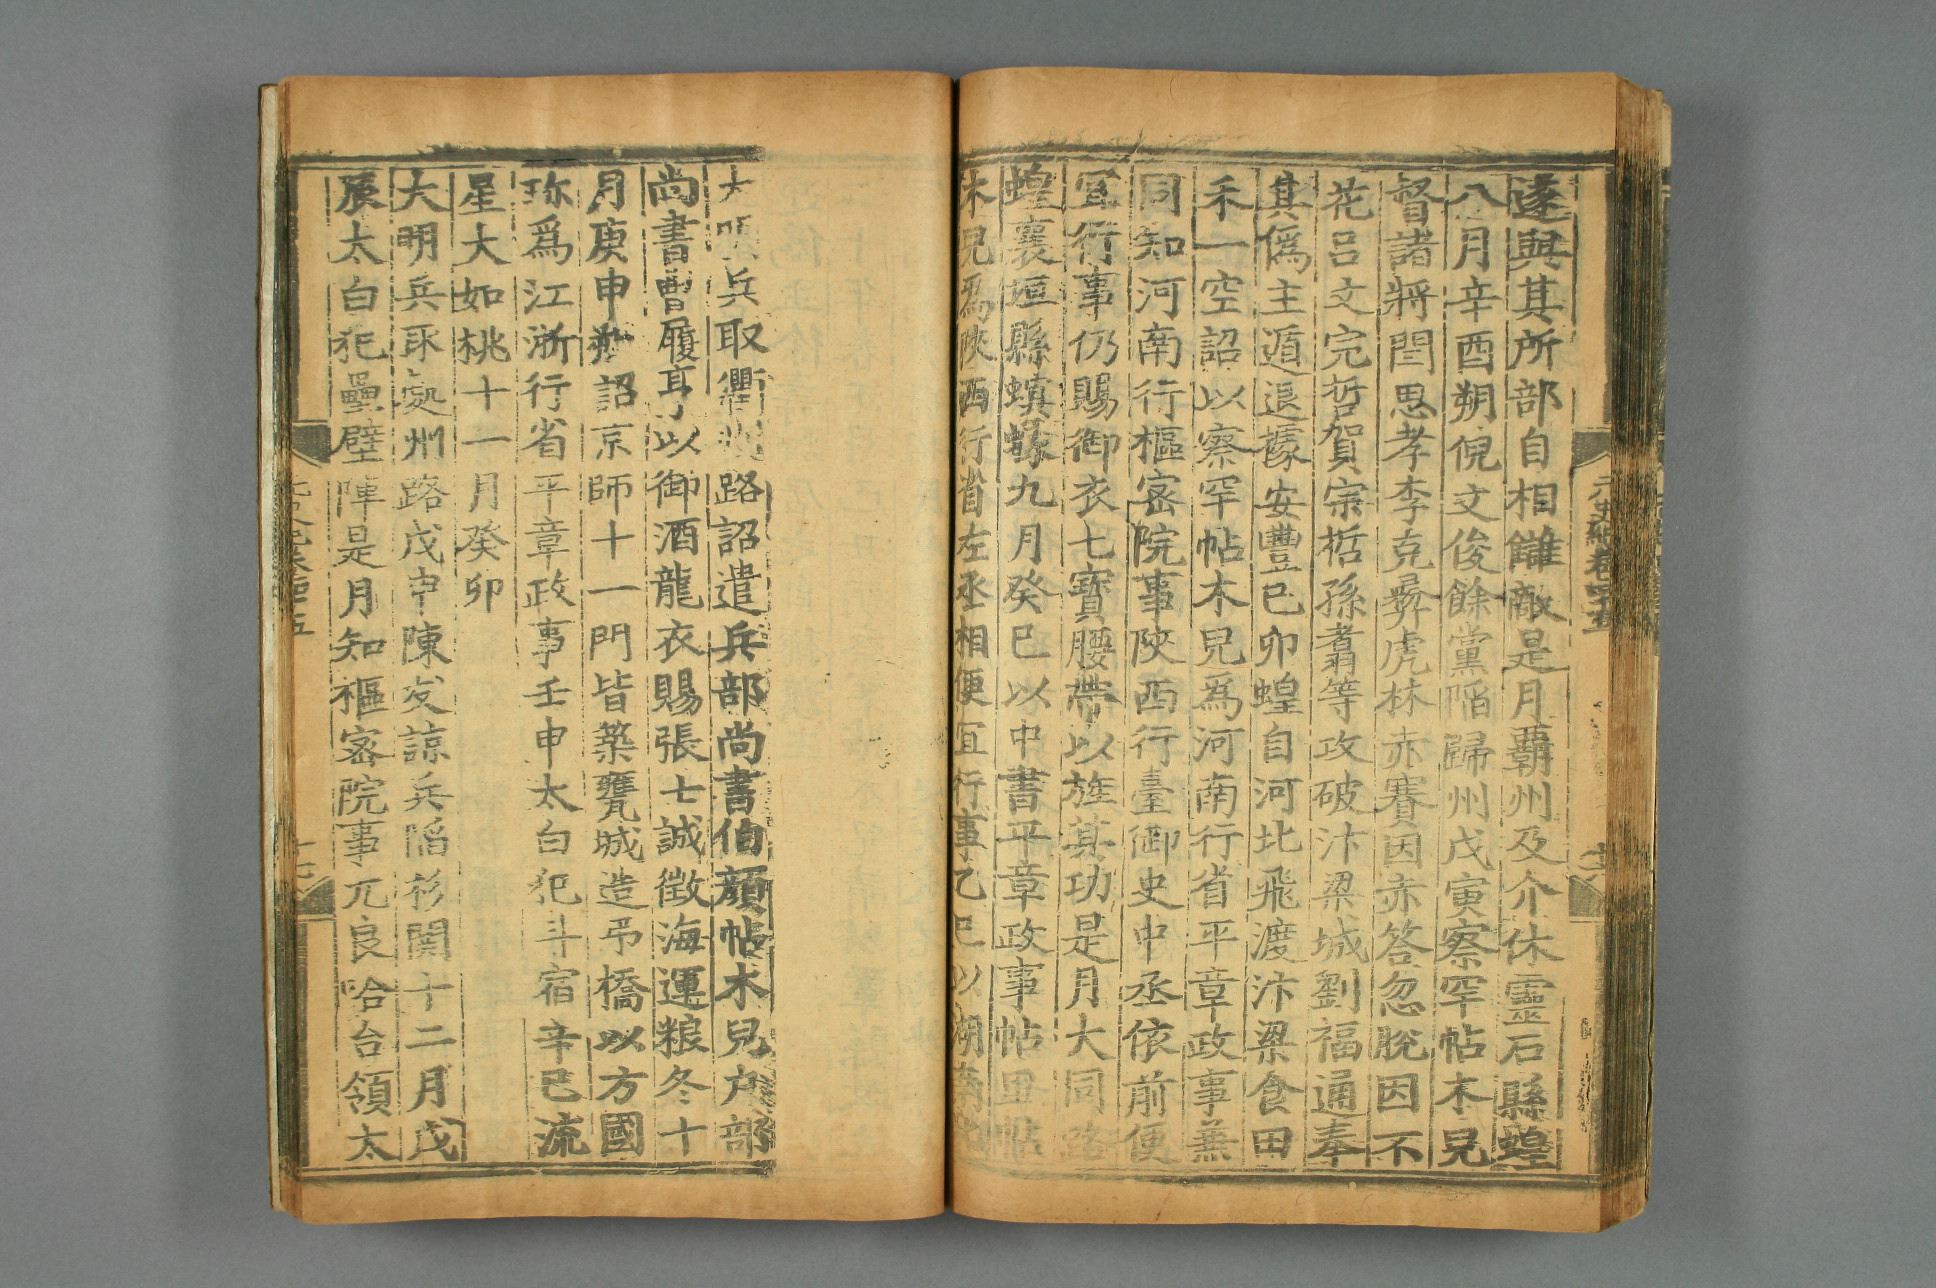 遂與其所部自相讎敵是月霸州及介休靈石縣蝗
八月辛酉朔倪文俊餘黨陷歸州戊寅察罕帖木兒
督諸將閻思孝李克彞虎林赤賽因赤答忽脫因不
花呂文完哲賀宗哲孫翥等攻破汴梁城劉福通奉
其僞主遁退據安豐己卯蝗自河北飛渡汴梁食田
禾一空詔以察罕帖木兒爲河南行省平章政事兼
同知河南行樞密院事陝西行臺御史中丞依前便
宜行事仍賜御衣七寶腰帶以旌其功是月大同路
蝗襄垣縣螟蟓九月癸巳以中書平章政事帖里帖
木兒爲陝西行省左丞相便宜行事乙巳以湖南
元史紀卷四十五
大明兵取衢州路詔遣兵部尚書伯顏帖木兒戶部
尚書曹履亨以御酒龍衣賜張士誠徵海運粮冬十
月庚申朔詔京師十一門皆築甕城造吊橋以方國
珍爲江浙行省平章政事壬申太白犯斗宿辛巳流
星大如桃十一月癸卯
大明兵取處州路戊申陳友諒兵陷杉關十二月戊
辰太白犯壘壁陣是月知樞密院事兀良哈台領太